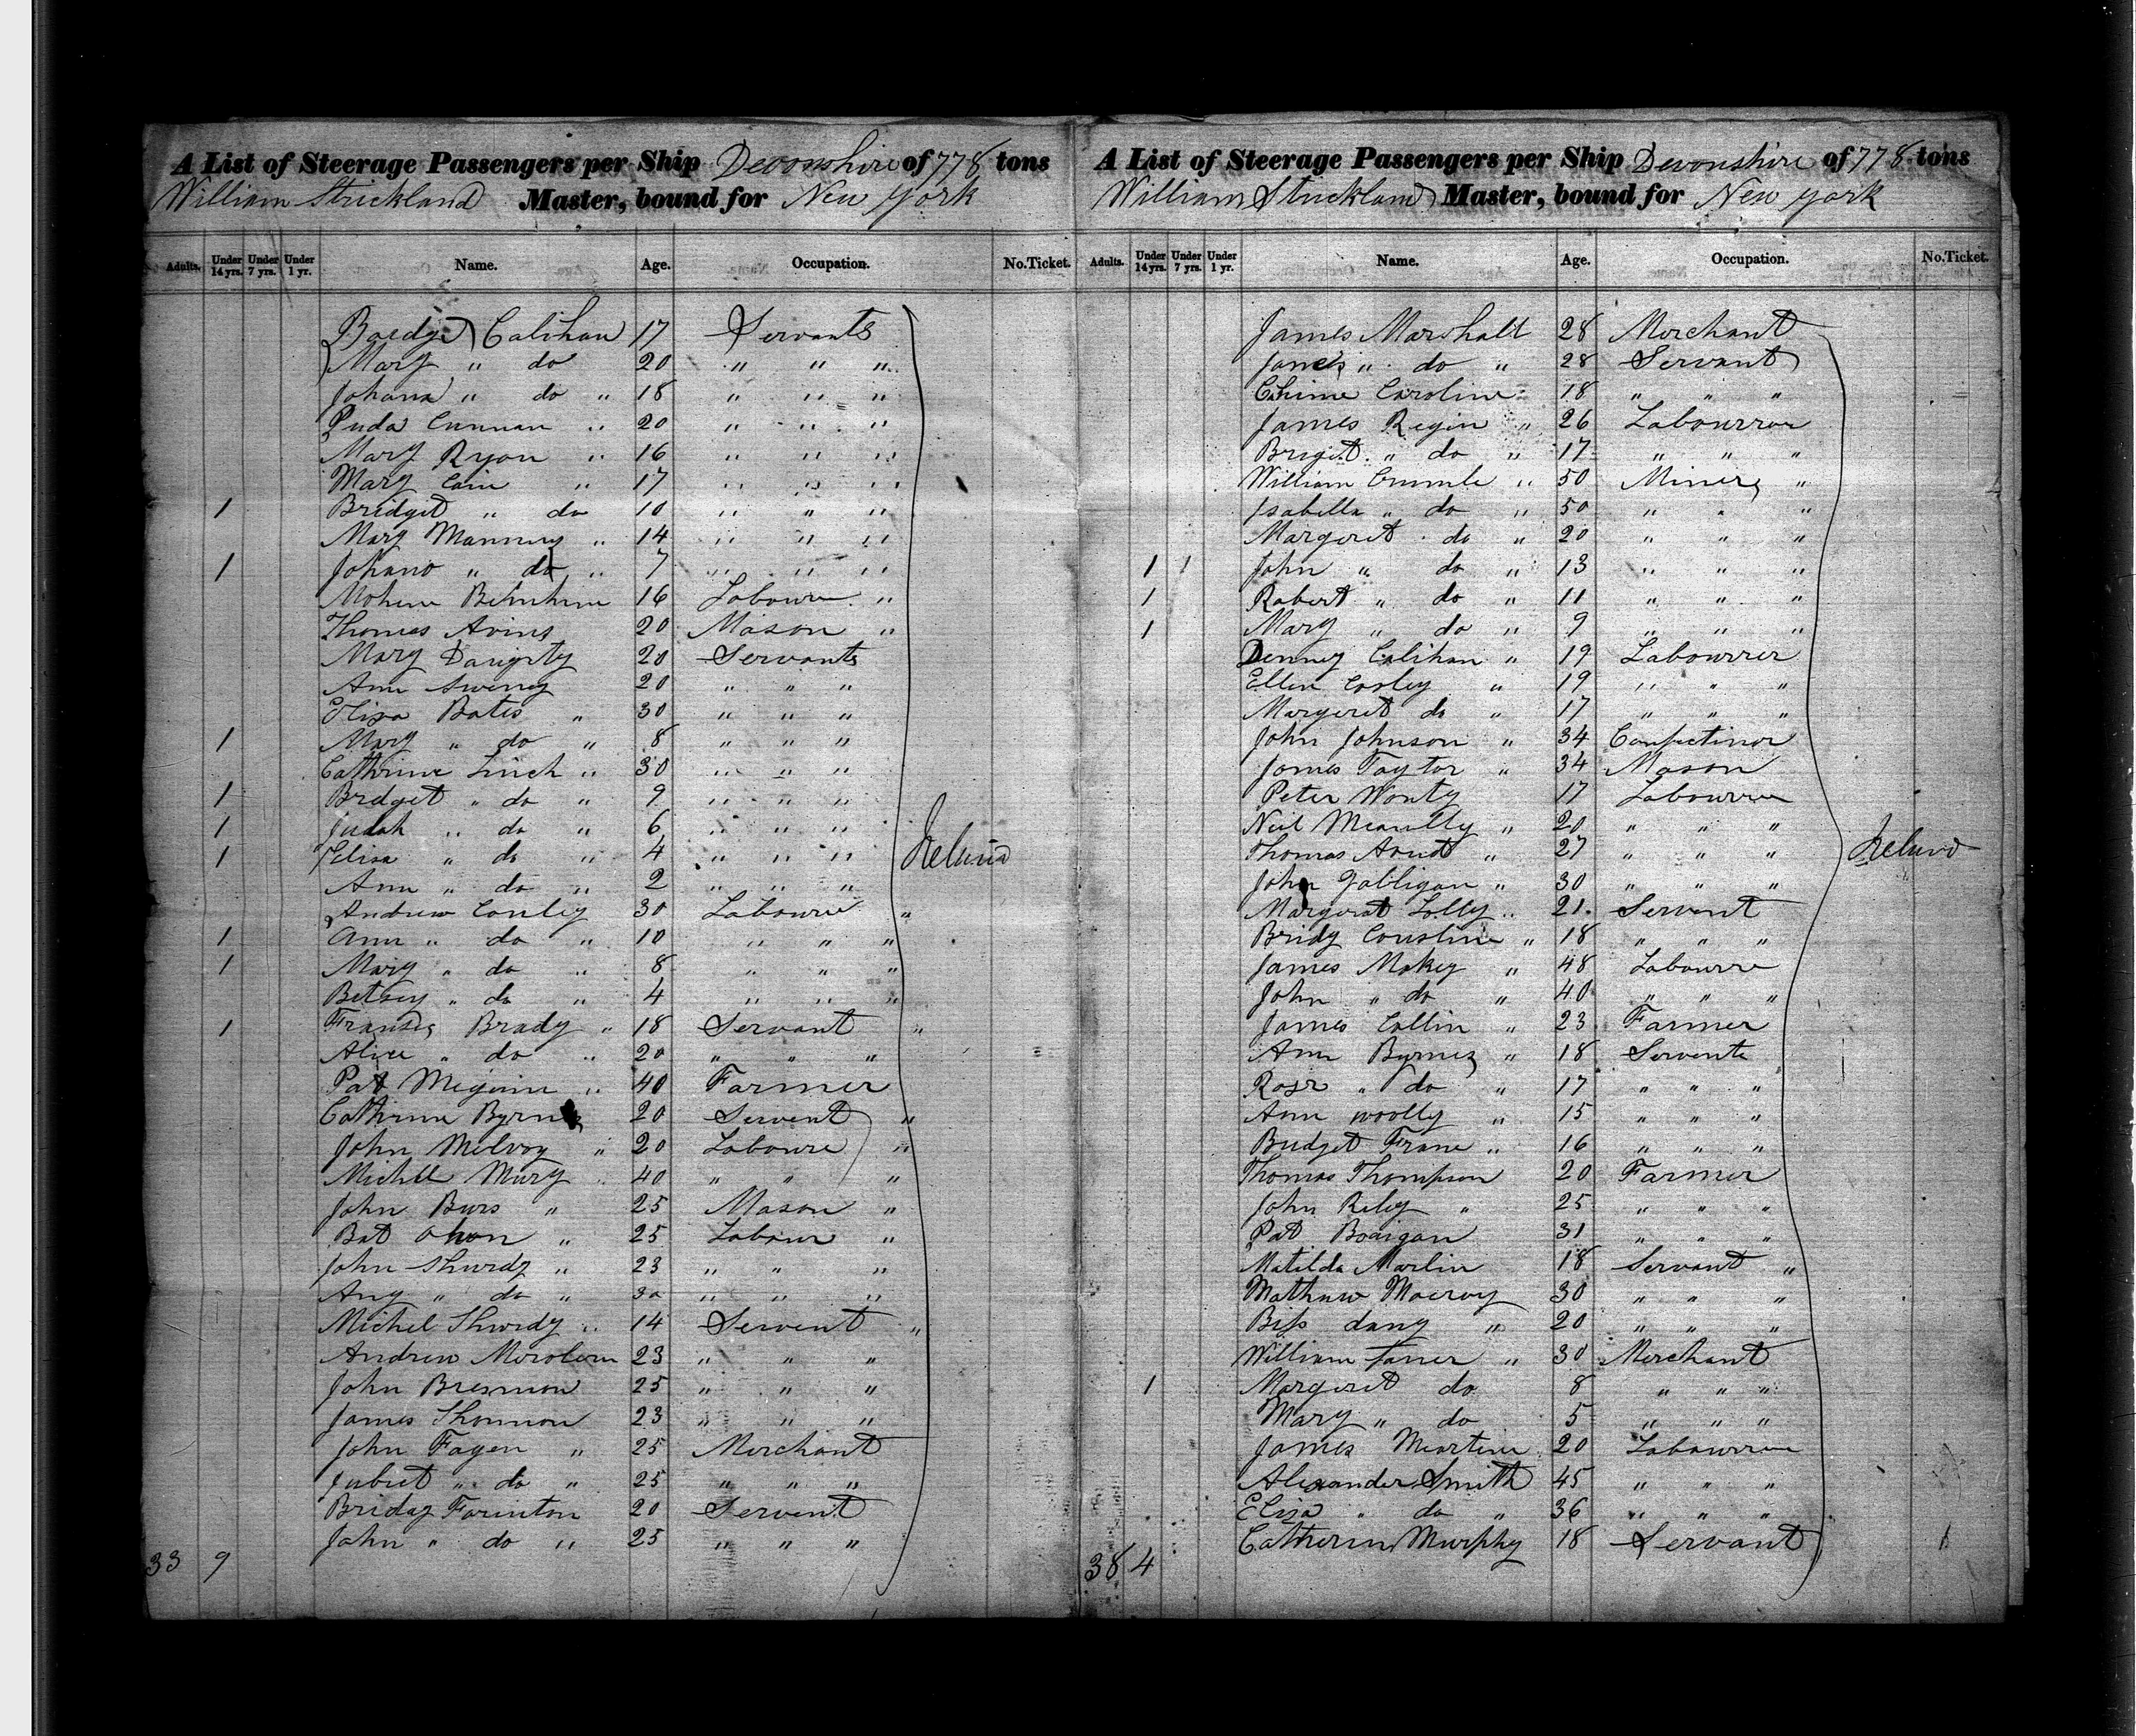 A List of Steerage Passengers per Ship Devonshire of 778 tons
William Strickland Master, bound for New York
Adults. Under 14 yrs. Under 7 yrs. Under 1 yr. Name. Age. Occupation. No. Ticket.
Calihan 17 Servants
Mary " do 20 " " "
Johana " do " 18 " " "
Cunnan " 20 " " "
Mary Ryan " 16 " " "
Mary Cain " 17 " " "
1 Bridget " do 10 " " "
Mary Manning " 14 " " "
1 Johana " do " 7 " " "
16 Laboure "
Thomas Avins 20 Mason "
Mary Daugrty 20 Servants
Ann Sweney 20 " " "
Elisa Bates " 30 " " "
1 Mary " do " 8 " " "
Cathrine Linch " 30 " " "
1 Bridget " do " 9 " " "
1 Judah " do " 6 " " "
1 Elisa " do " 4 " " "
Ann " do " 2 " " "
Ireland
Andrew Conley 30 Laboure "
1 Ann " do " 10 " " "
1 Mary " do " 8 " " "
Betsey " do " 4 " " "
1 Fransis Brady " 18 Servant "
Alice " do " 20 " " "
Pat Meguine " 40 Farmer
Cathrine Byrnes 20 Servent "
John Melvoy " 20 Laboure "
Michll Mury " 40 " " "
John Burs " 25 Mason "
Bat 25 Labour "
John Shurdy " 23 " " "
" do " 30 " " "
Michel Shurdy " 14 Servent "
Andrew 23 " " "
John Bresnion 25 " " "
James Shonnon 23 " " "
John Fagen " 25 Merchant
" do " 25 " " "
Briday Farinton 20 Servent
John " do " 25 " " "
33 9
A List of Steerage Passengers per Ship Devonshire of 778 tons
William Strickland Master, bound for New York
Adults. Under 14 yrs. Under 7 yrs. Under 1 yr. Name. Age. Occupation. No. Ticket.
James Marshall 28 Merchant
" do " 28 Servant
Caroline 18 " " "
James Regin " 26 Labourror
Briget " do " 17 " " "
William Crumle " 50 Miner "
Isabella " do " 50 " " "
Margeret " do " 20 " " "
1 John " do " 13 " " "
1 Robert " do " 11 " " "
1 Mary " do " 9 " " "
Denney Calihan " 19 Labourrer
Ellen Cosley " 19 " " "
Margeret do " 17 " " "
John Johnson " 34 Confectinor
James Taytor " 34 Mason
Peter Wonty 17 Labourrer
Neil " 20 " " "
Thomas " 27 " " "
Ireland
John Galligan " 30 " " "
Margerat Lolly " 21 Servent
Bridy " 18 " " "
James Makey " 48 Labourre
John " do " 40 " " "
James Collin " 23 Farmer
Ann Byrnes " 18 Servente
Rose " do " 17 " " "
Ann woolly " 15 " " "
Budget Frane " 16 " " "
Thomas Thompson 20 Farmer
John Reley " 25 " " "
Pat Boaigan 31 " " "
Matilda Marlin 18 Servant "
Mathuw Macroy 30 " " "
Biss dany " 20 " " "
William Farrer " 30 Merchant
1 Margeret do 8 " " "
Mary " do 5 " " "
James Meartine 20 Labourror
Alexander Smith 45 " " "
Elisa " do " 36 " " "
Catherin Murphy 18 Servant
38 4